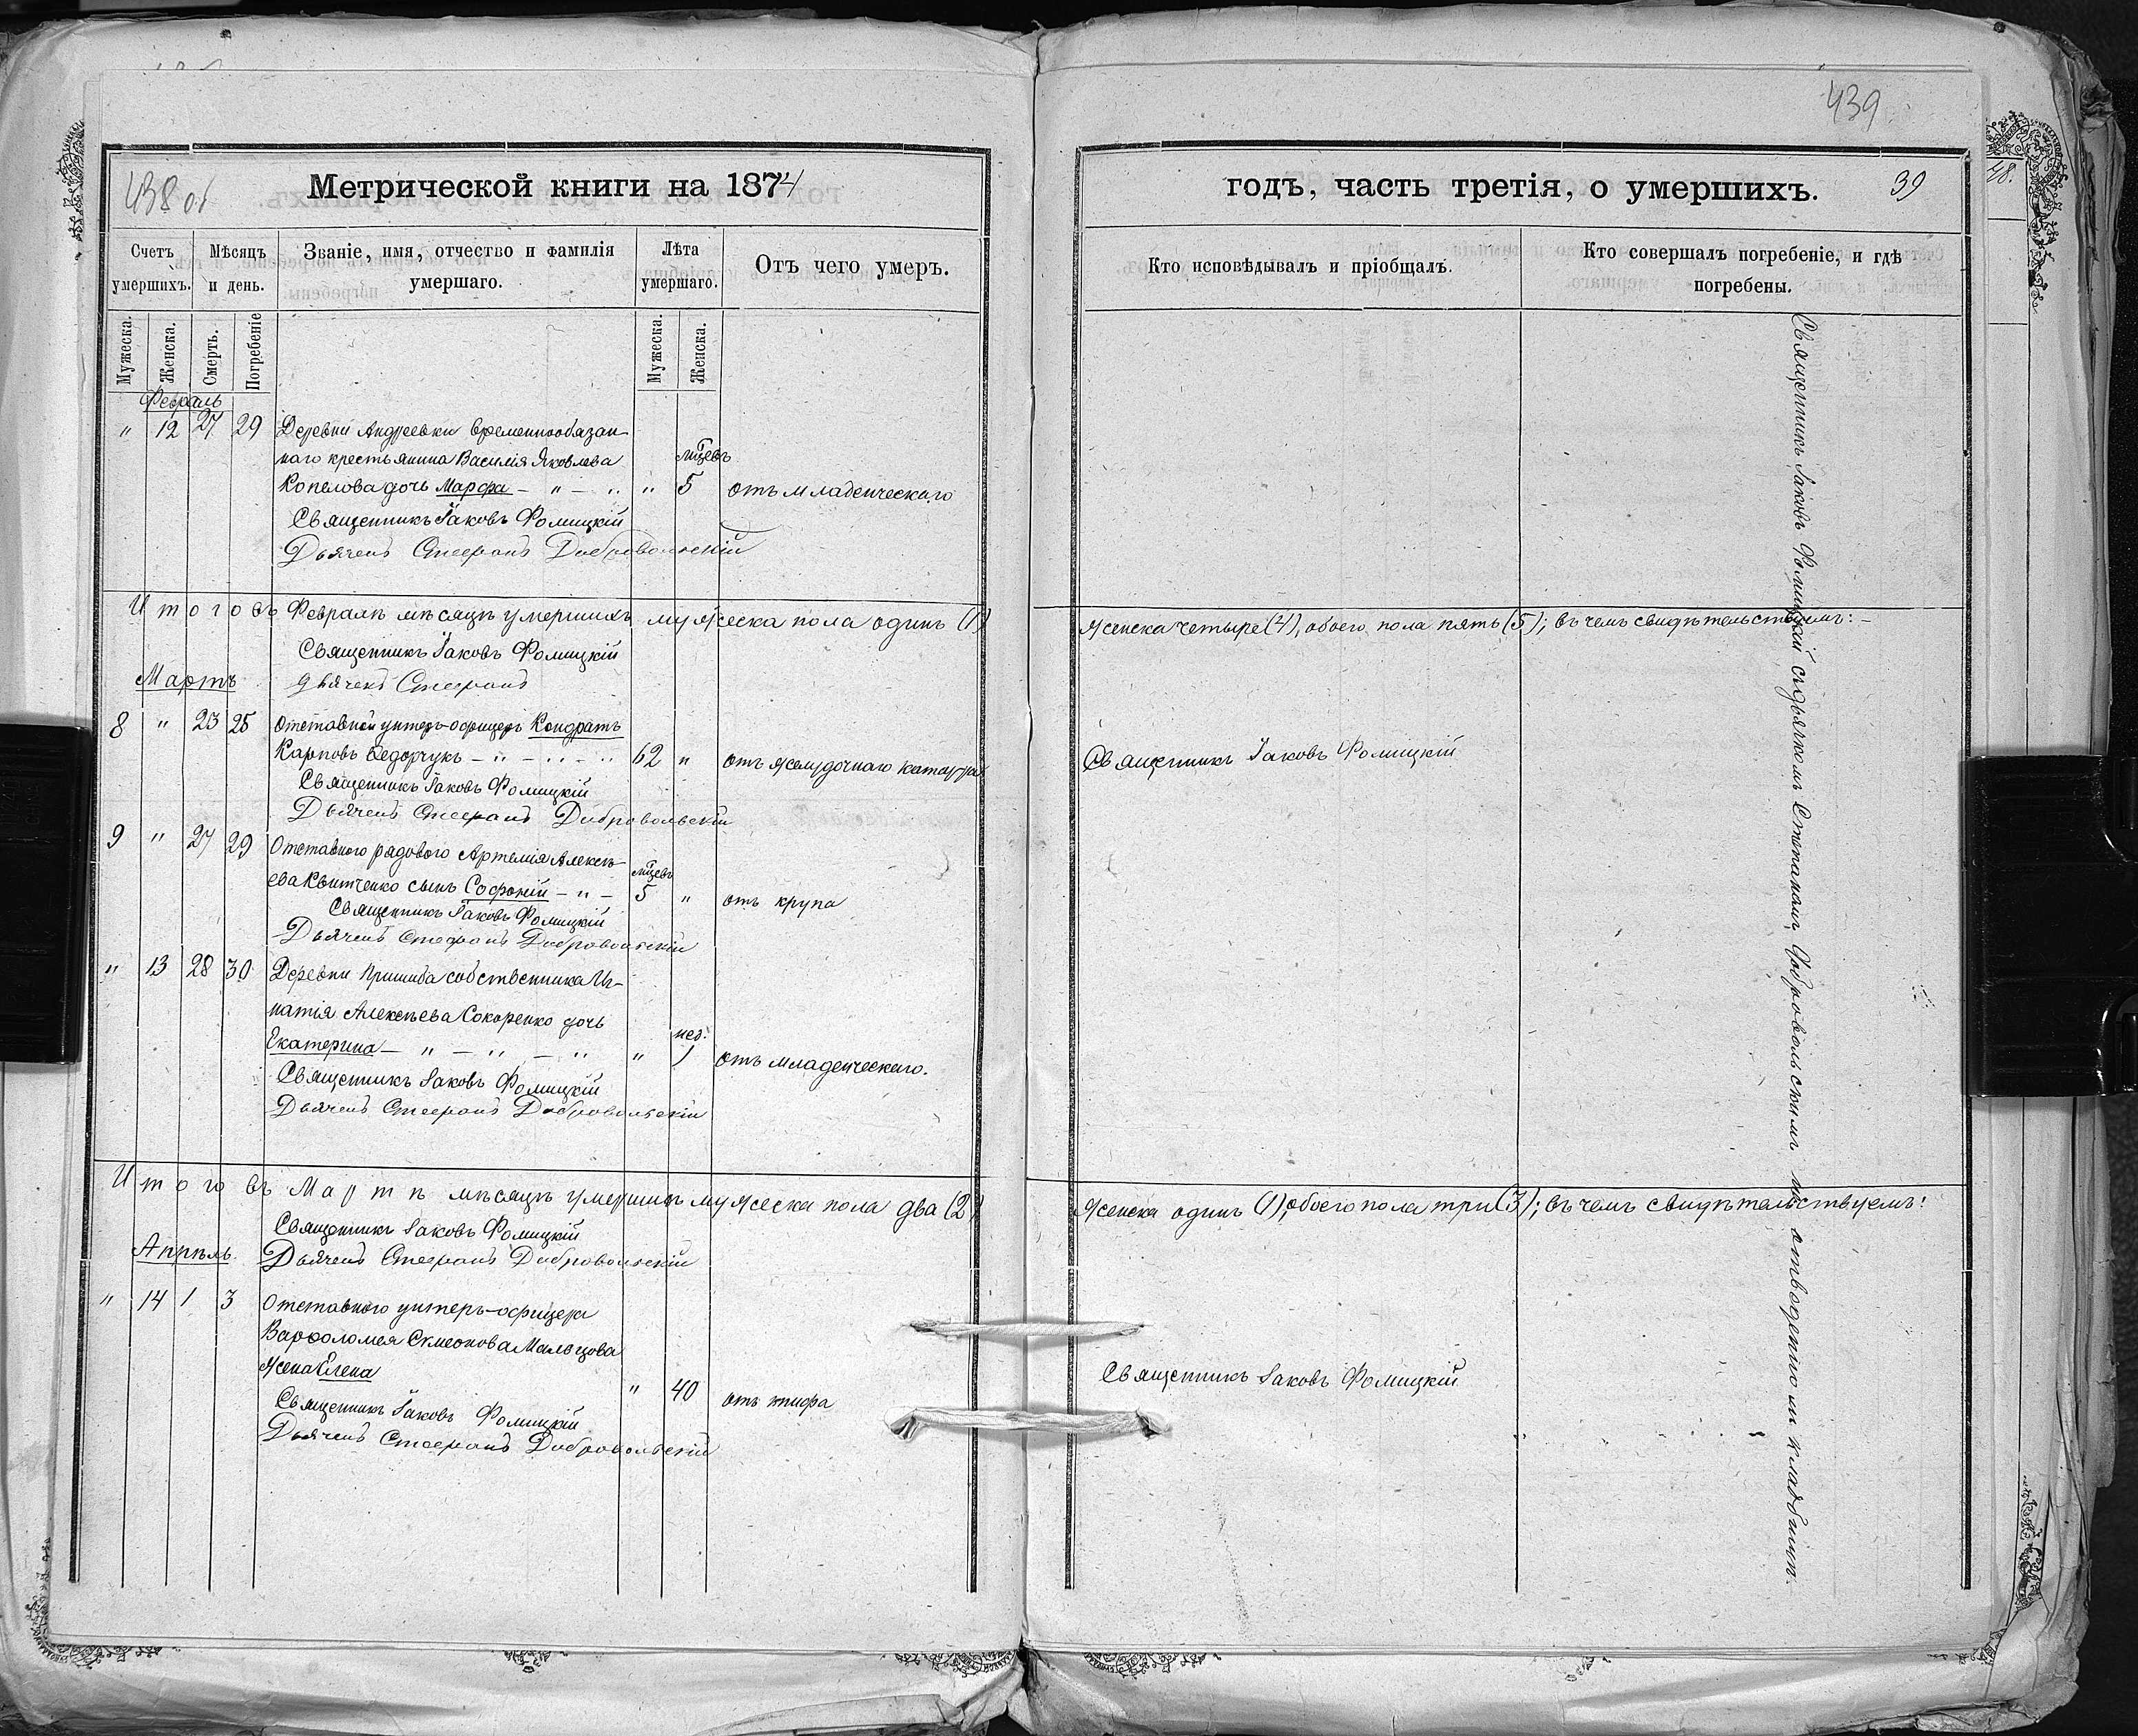 439
438 об
Метрической книги на 1874
годъ, часть третія, о умершихъ.
39
48.
Счетъ умершихъ.
Мѣсяцъ и день.
Званіе, имя, отчество и фамилія умершаго.
Лѣта умершаго.
Отъ чего умеръ.
Кто исповѣдывалъ и пріобщалъ.
Кто совершалъ погребеніе, и гдѣ погребены.
Мужеска.
Женска.
Смерть.
Погребеніе
Мужеска.
Женска.
Февраль
" 12 27 29 Деревни Андреевки временнообязан-
наго крестьянина Василія Яковлева мцевъ
Копелова дочь Марфа - " - " " 5 отъ младенческаго
Священникъ Іаковъ Фомицкій
Дьячекъ Стефанъ Добровольскій
Итого въ Февралѣ мѣсяцѣ умершихъ мужеска пола одинъ (1)
женска четыре (4), обоего пола пять (5); въ чемъ свидѣтельствуемъ: -
Священникъ Іаковъ Фомицкій
дьячекъ Стефанъ
Мартъ
8 " 23 25 Отставной унтеръ-офицеръ Кондратъ
Карповъ Федорчукъ - " - " - " 62 " отъ желудочнаго катарра
Священникъ Іаковъ Фомицкій
Священникъ Іаковъ Фомицкій
Дьячекъ Стефанъ Добровольскій
9 " 27 29 Отставного рядового Артемія Алексѣ-
ева Квитченко сынъ Софоній - " - мцевъ 5 " отъ крупа
Священникъ Іаковъ Фомицкій
Дьячекъ Стефанъ Добровольскій
" 13 28 30 Деревни Пришиба собственника Иг-
натія Алексѣева Сокоренко дочь
Екатерина - " - " - " " нед. 1 отъ младенческаго.
Священникъ Іаковъ Фомицкій
Дьячекъ Стефанъ Добровольскій
Итого въ Мартѣ мѣсяцѣ умершихъ мужеска пола два (2)
женска одинъ (1), обоего пола три (3); въ чемъ свидѣтельствуемъ:
Священникъ Іаковъ Фомицкій
Апрѣль.
Дьячекъ Стефанъ Добровольскій
" 14 1 3 Отставного унтеръ-офицера
Варфоломея Симеонова Мальцова
жена Елена " 40 отъ тифа
Священникъ Іаковъ Фомицкій
Священникъ Іаковъ Фомицкій
Дьячекъ Стефанъ Добровольскій
Священникъ Іаковъ Фомицкій съ дьячкомъ Стефаномъ Добровольскимъ на отведенномъ кладбищѣ.